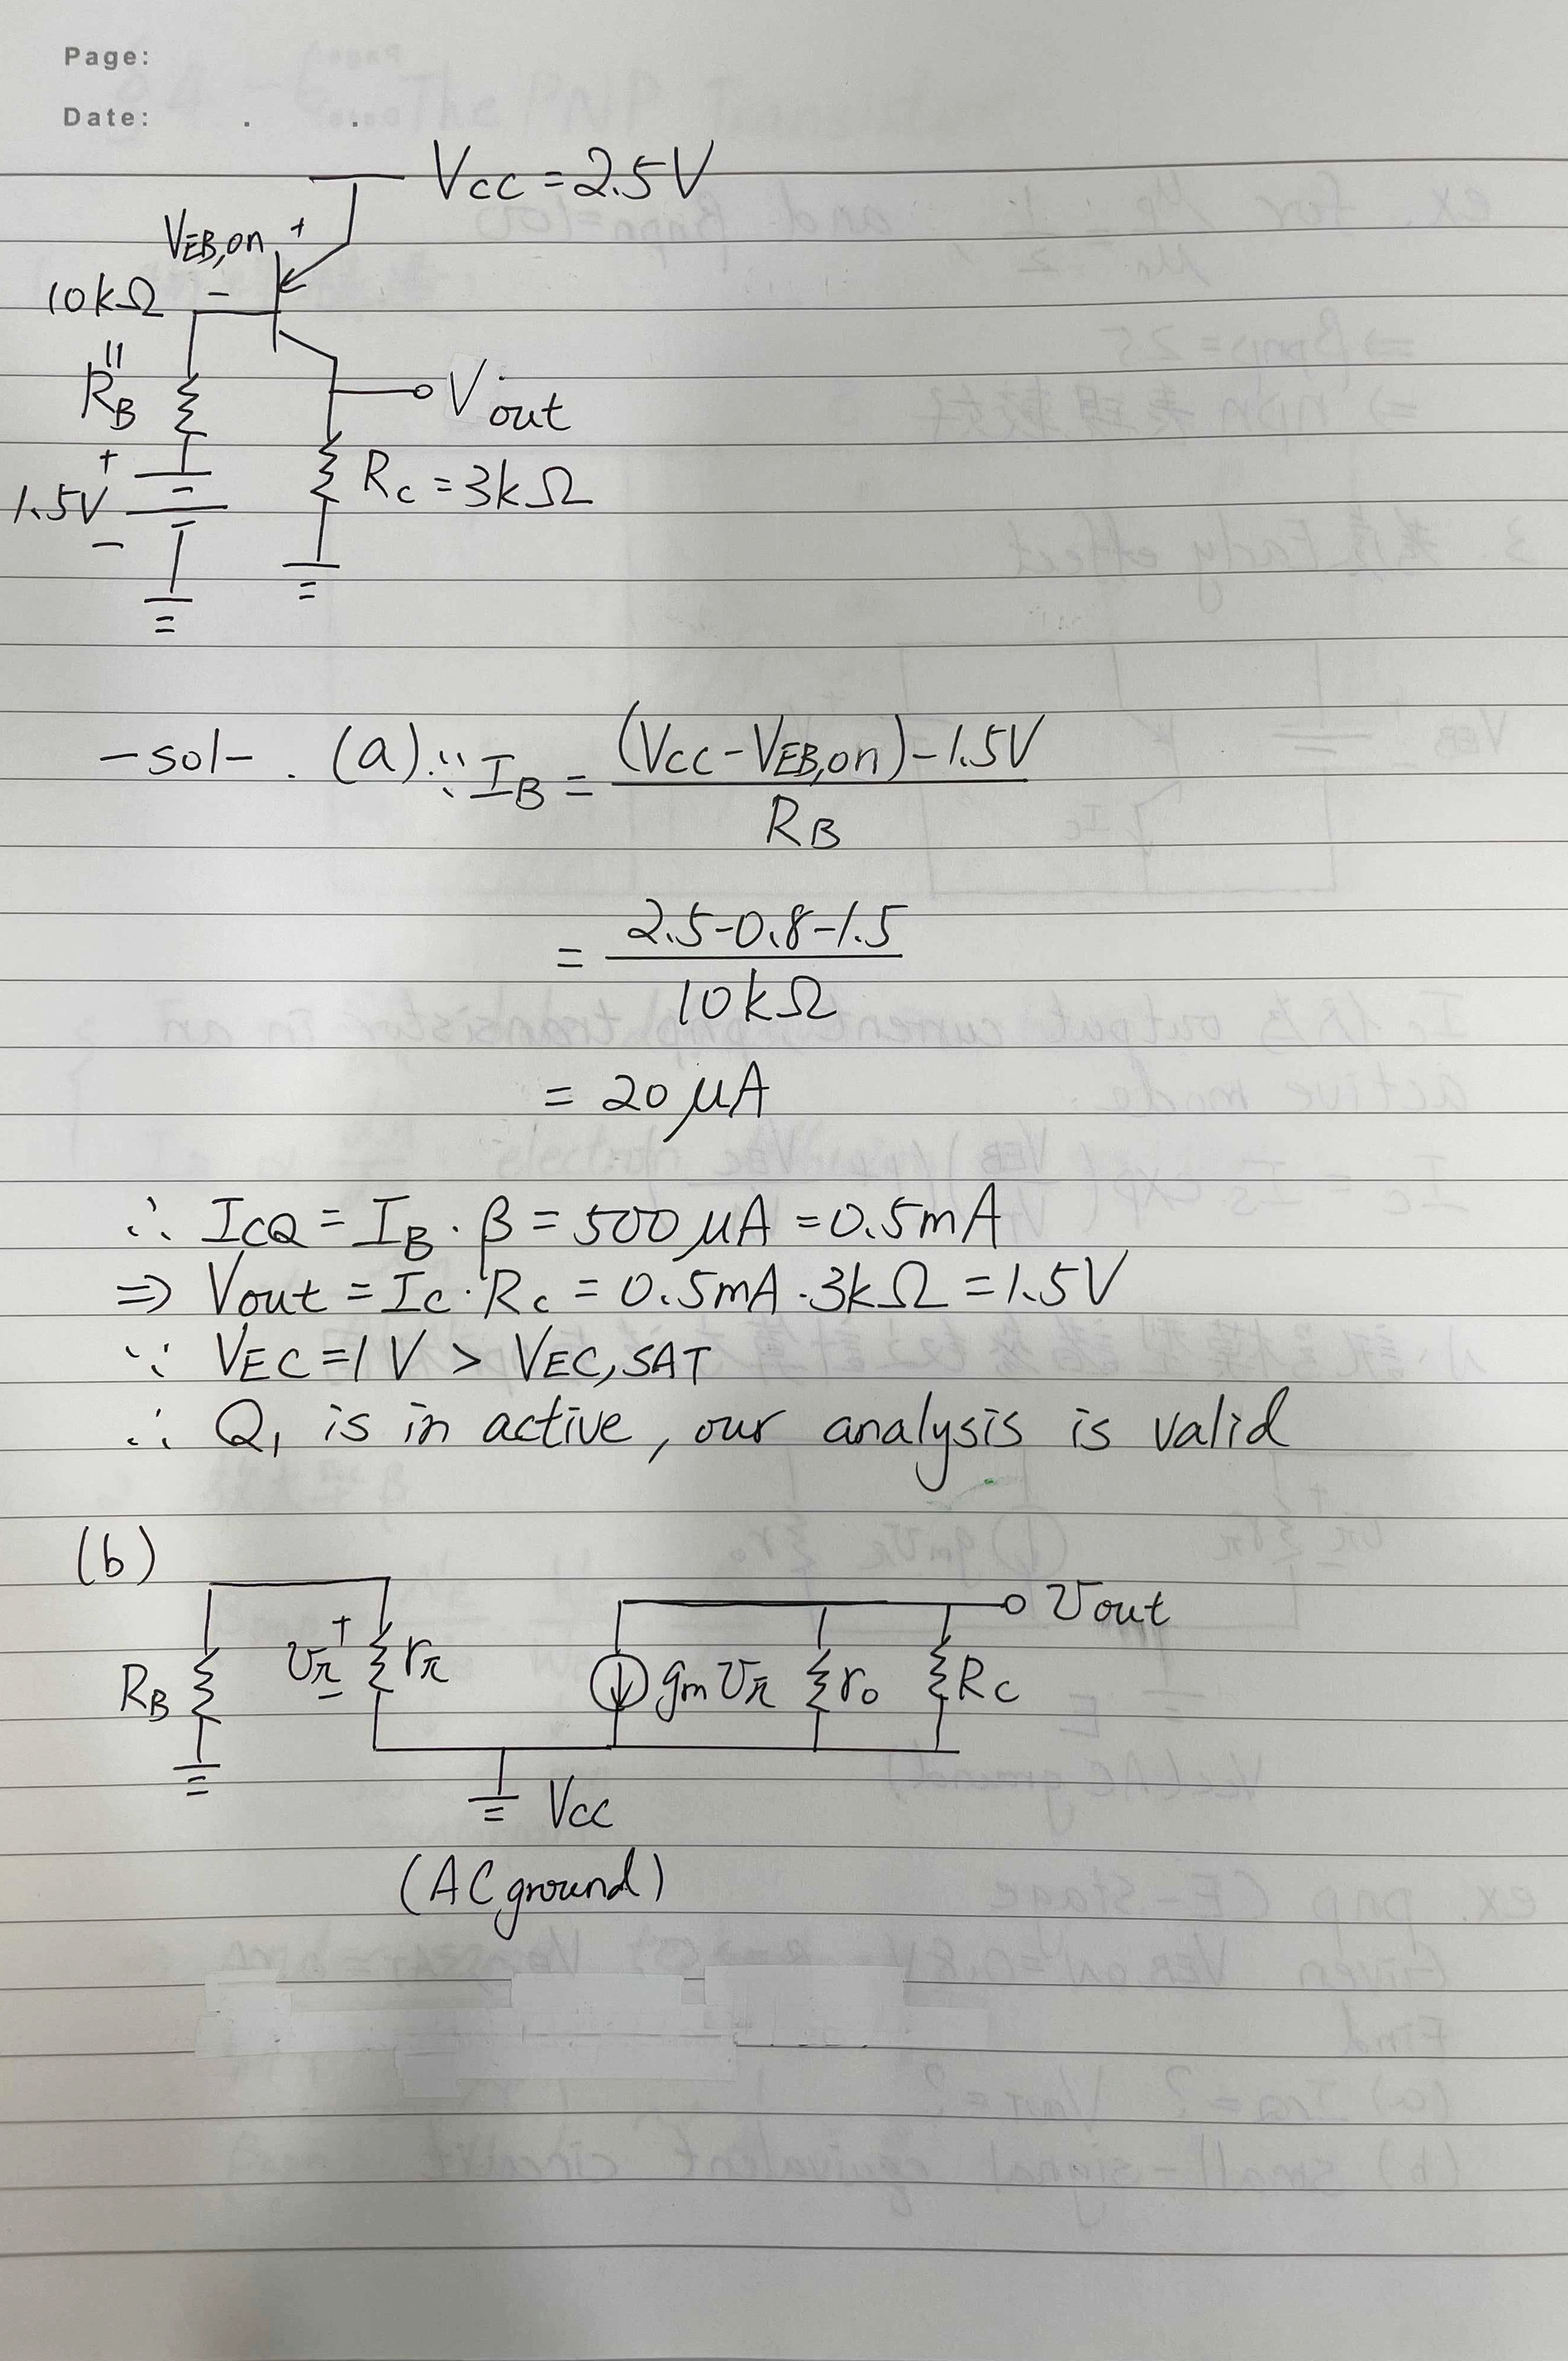 Page:
Date: . .
Vcc = 2.5V
VEB,on +
10kΩ −
=
RB
Vout
+
1.5V
−
Rc = 3kΩ
-sol- . (a) ∵ IB = (Vcc - VEB,on) - 1.5V / RB
= 2.5-0.8-1.5 / 10kΩ
= 20 μA
∴ ICQ = IB · β = 500 μA = 0.5mA
⇒ Vout = Ic · Rc = 0.5mA · 3kΩ = 1.5V
∵ VEC = 1V > VEC,SAT
∴ Q1 is in active, our analysis is valid
(b)
RB
+
vπ
−
rπ
gm vπ
ro
Rc
vout
Vcc
(AC ground)